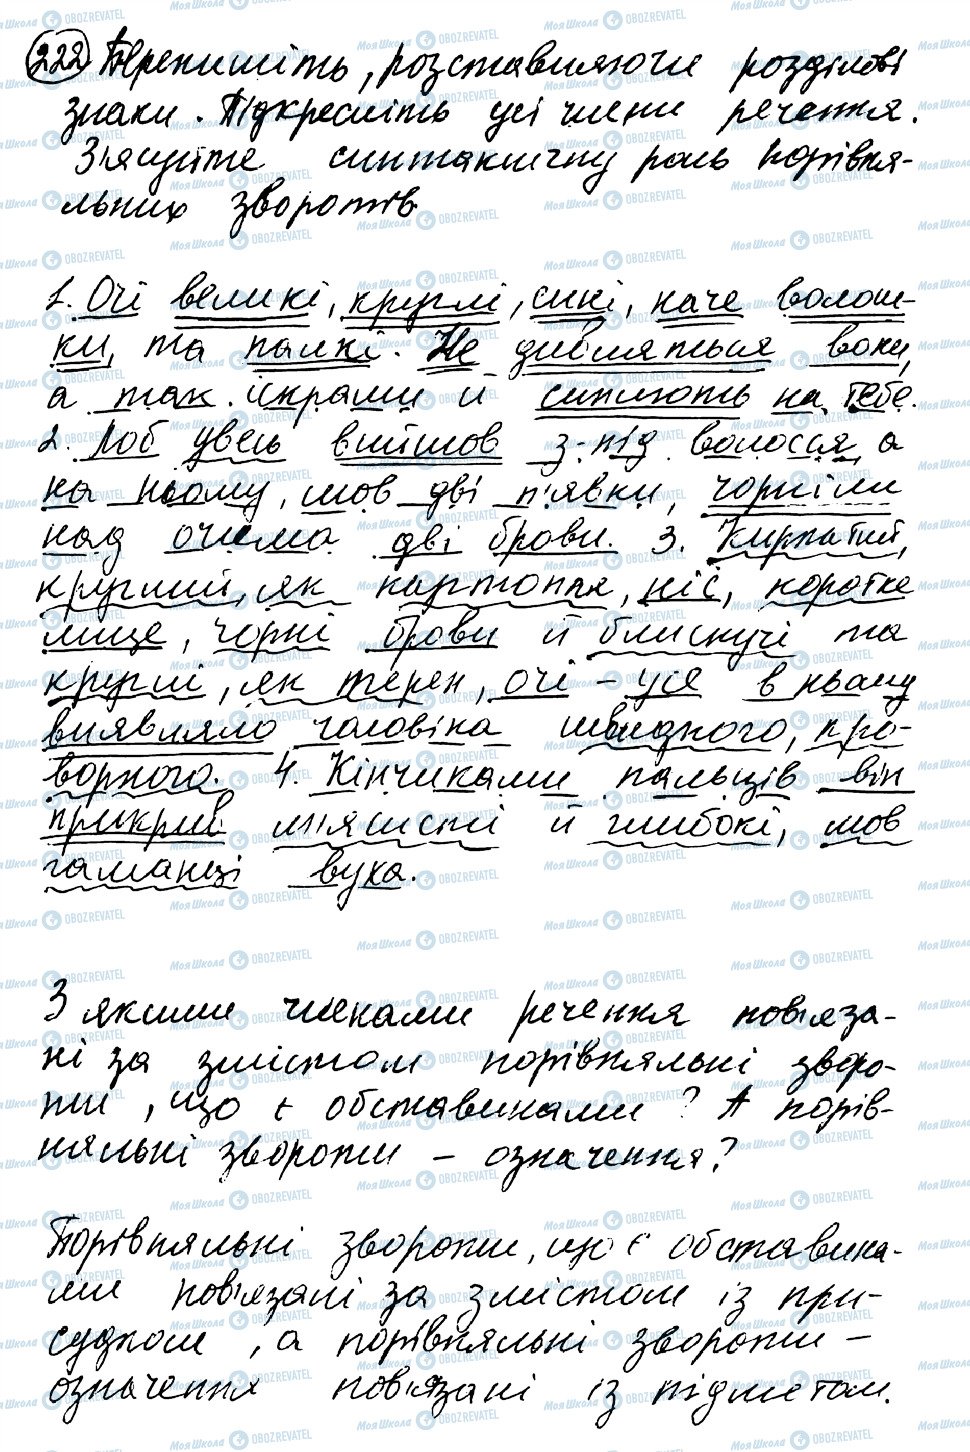 222 Перепишіть, розставляючи розділові
знаки. Підкресліть усі члени речення.
З'ясуйте синтаксичну роль порівня-
льних зворотів
1. Очі великі, круглі, сині, наче волош-
ки, та палкі. Не дивляться вони,
а так іскрами й сиплють на тебе.
2. Лоб увесь вийшов з-під волосся, а
на ньому, мов дві п'явки, чорніли
над очима дві брови. 3. Кирпатий,
круглий, як картопля, ніс, коротке
лице, чорні брови й блискучі та
круглі, як терен, очі – усе в ньому
виявляло чоловіка швидкого, про-
ворного. 4. Кінчиками пальців він
прикрив м'ясисті й глибокі, мов
гаманці вуха.
З якими членами речення пов'яза-
ні за змістом порівняльні зворо-
ти, що є обставинами? А порів-
няльні звороти – означення?
Порівняльні звороти, що є обставина-
ми пов'язані за змістом із при-
судком, а порівняльні звороти –
означення пов'язані із підметом.